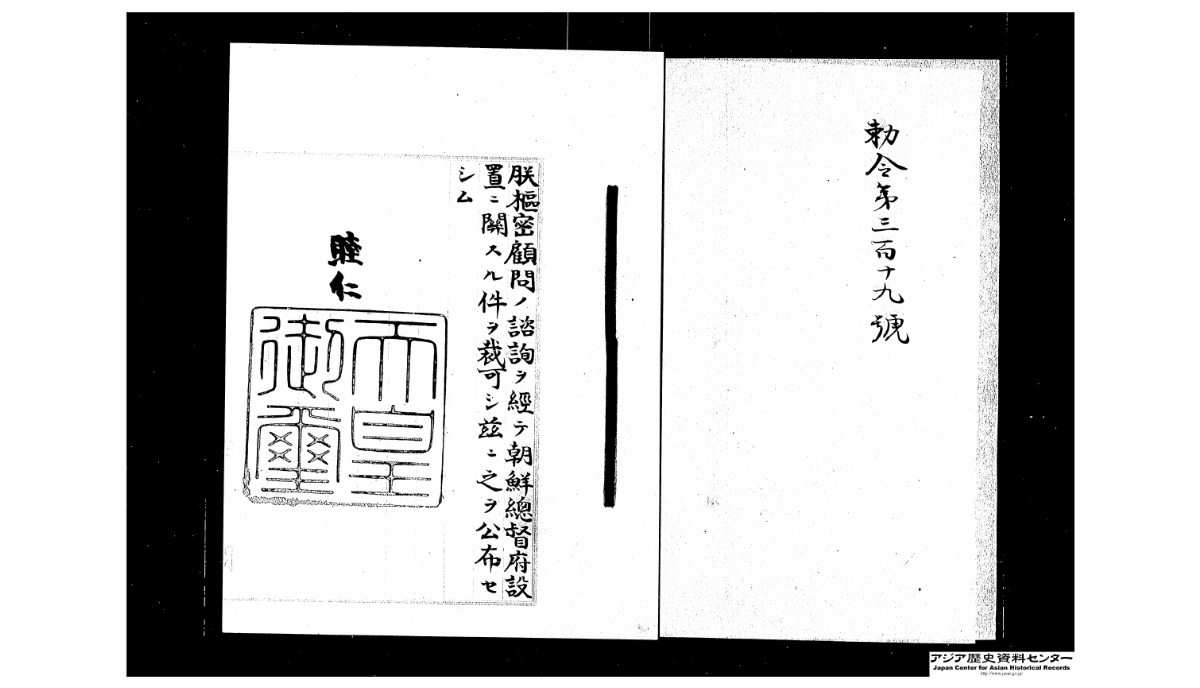 勅令第三百十九號
朕樞密顧問ノ諮詢ヲ經テ朝鮮總督府設
置ニ關スル件ヲ裁可シ茲ニ之ヲ公布セ
シム
睦仁
天皇
御璽
アジア歴史資料センター
Japan Center for Asian Historical Records
http://www.jacar.go.jp/